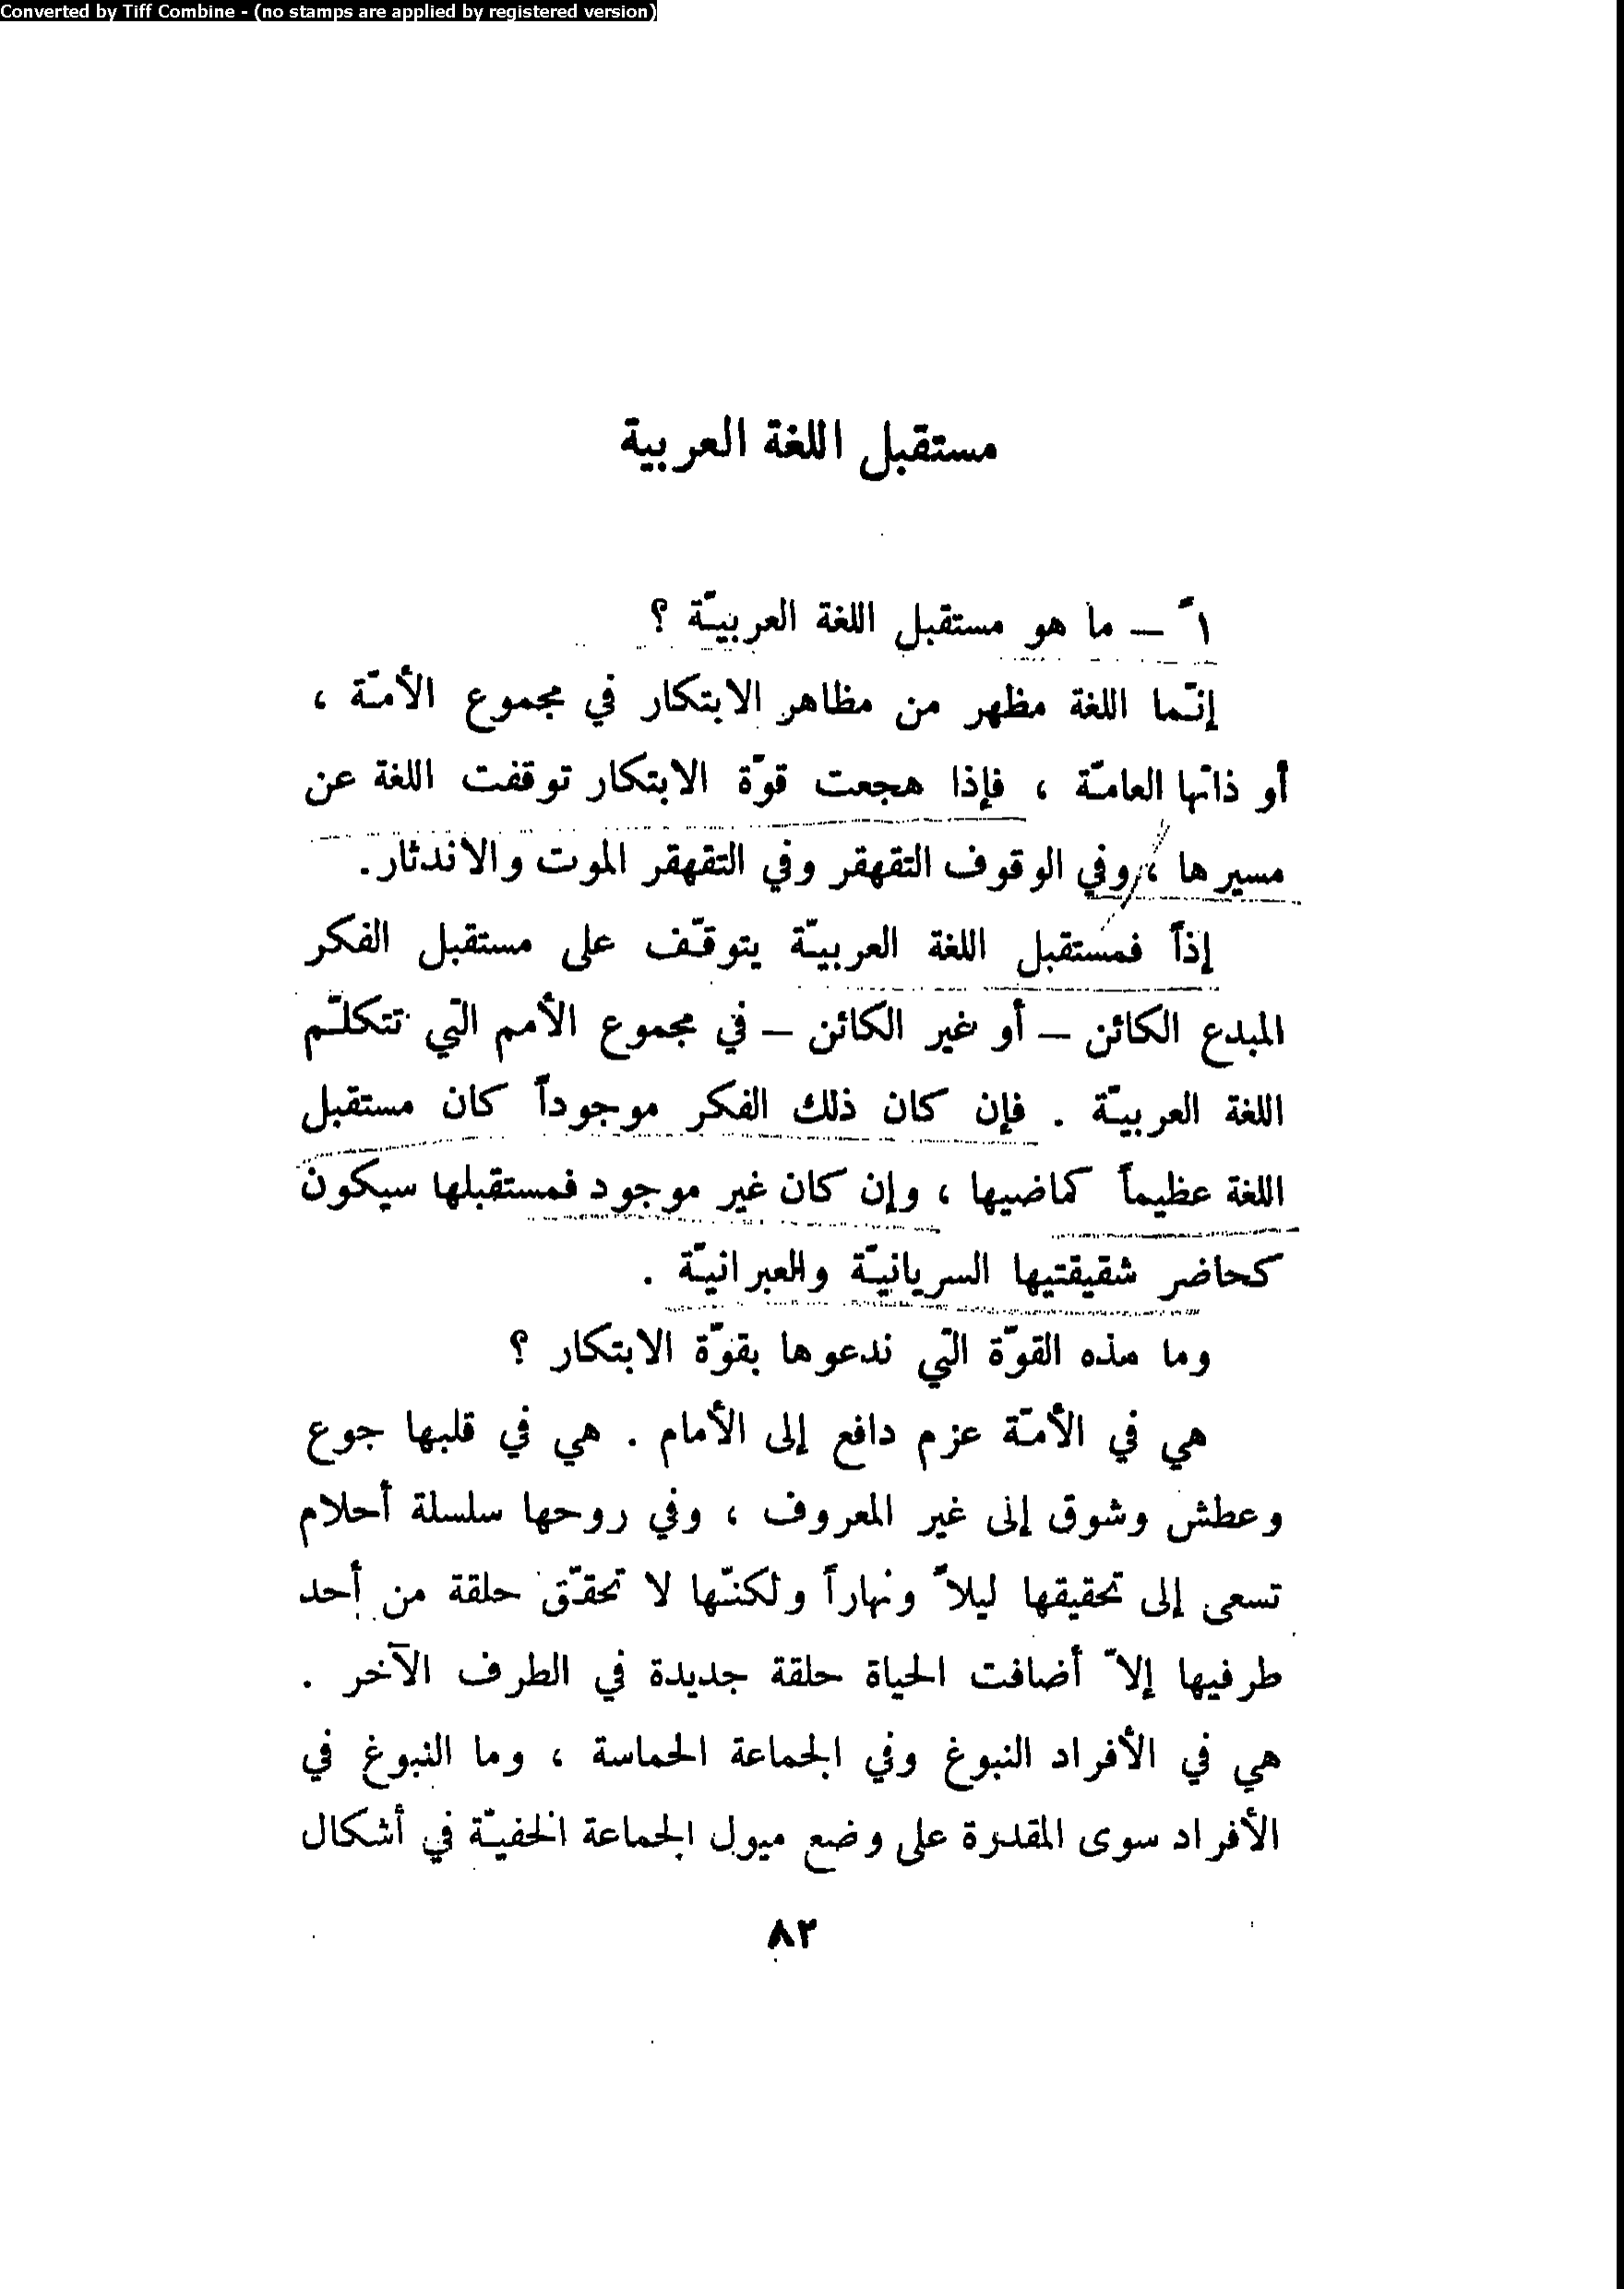 Converted by Tiff Combine - (no stamps are applied by registered version)
مستقبل اللغة العربية
١ً – ما هو مستقبل اللغة العربيّة ؟
إنّما اللغة مظهر من مظاهر الابتكار في مجموع الأمّة ،
أو ذاتها العامّة ، فإذا هجعت قوّة الابتكار توقفت اللغة عن
مسيرها ، وفي الوقوف التقهقر وفي التقهقر الموت والاندثار.
إذاً فمستقبل اللغة العربيّة يتوقّف على مستقبل الفكر
المبدع الكائن – أو غير الكائن – في مجموع الأمم التي تتكلّم
اللغة العربيّة . فإن كان ذلك الفكر موجوداً كان مستقبل
اللغة عظيماً كماضيها ، وإن كان غير موجود فمستقبلها سيكون
كحاضر شقيقتيها السريانيّة والعبرانيّة .
وما هذه القوّة التي ندعوها بقوّة الابتكار ؟
هي في الأمّة عزم دافع إلى الأمام . هي في قلبها جوع
وعطش وشوق إلى غير المعروف ، وفي روحها سلسلة أحلام
تسعى إلى تحقيقها ليلاً ونهاراً ولكنّها لا تحقّق حلقة من أحد
طرفيها إلاّ أضافت الحياة حلقة جديدة في الطرف الآخر .
هي في الأفراد النبوغ وفي الجماعة الحماسة ، وما النبوغ في
الأفراد سوى المقدرة على وضع ميول الجماعة الخفيّة في أشكال
٨٢